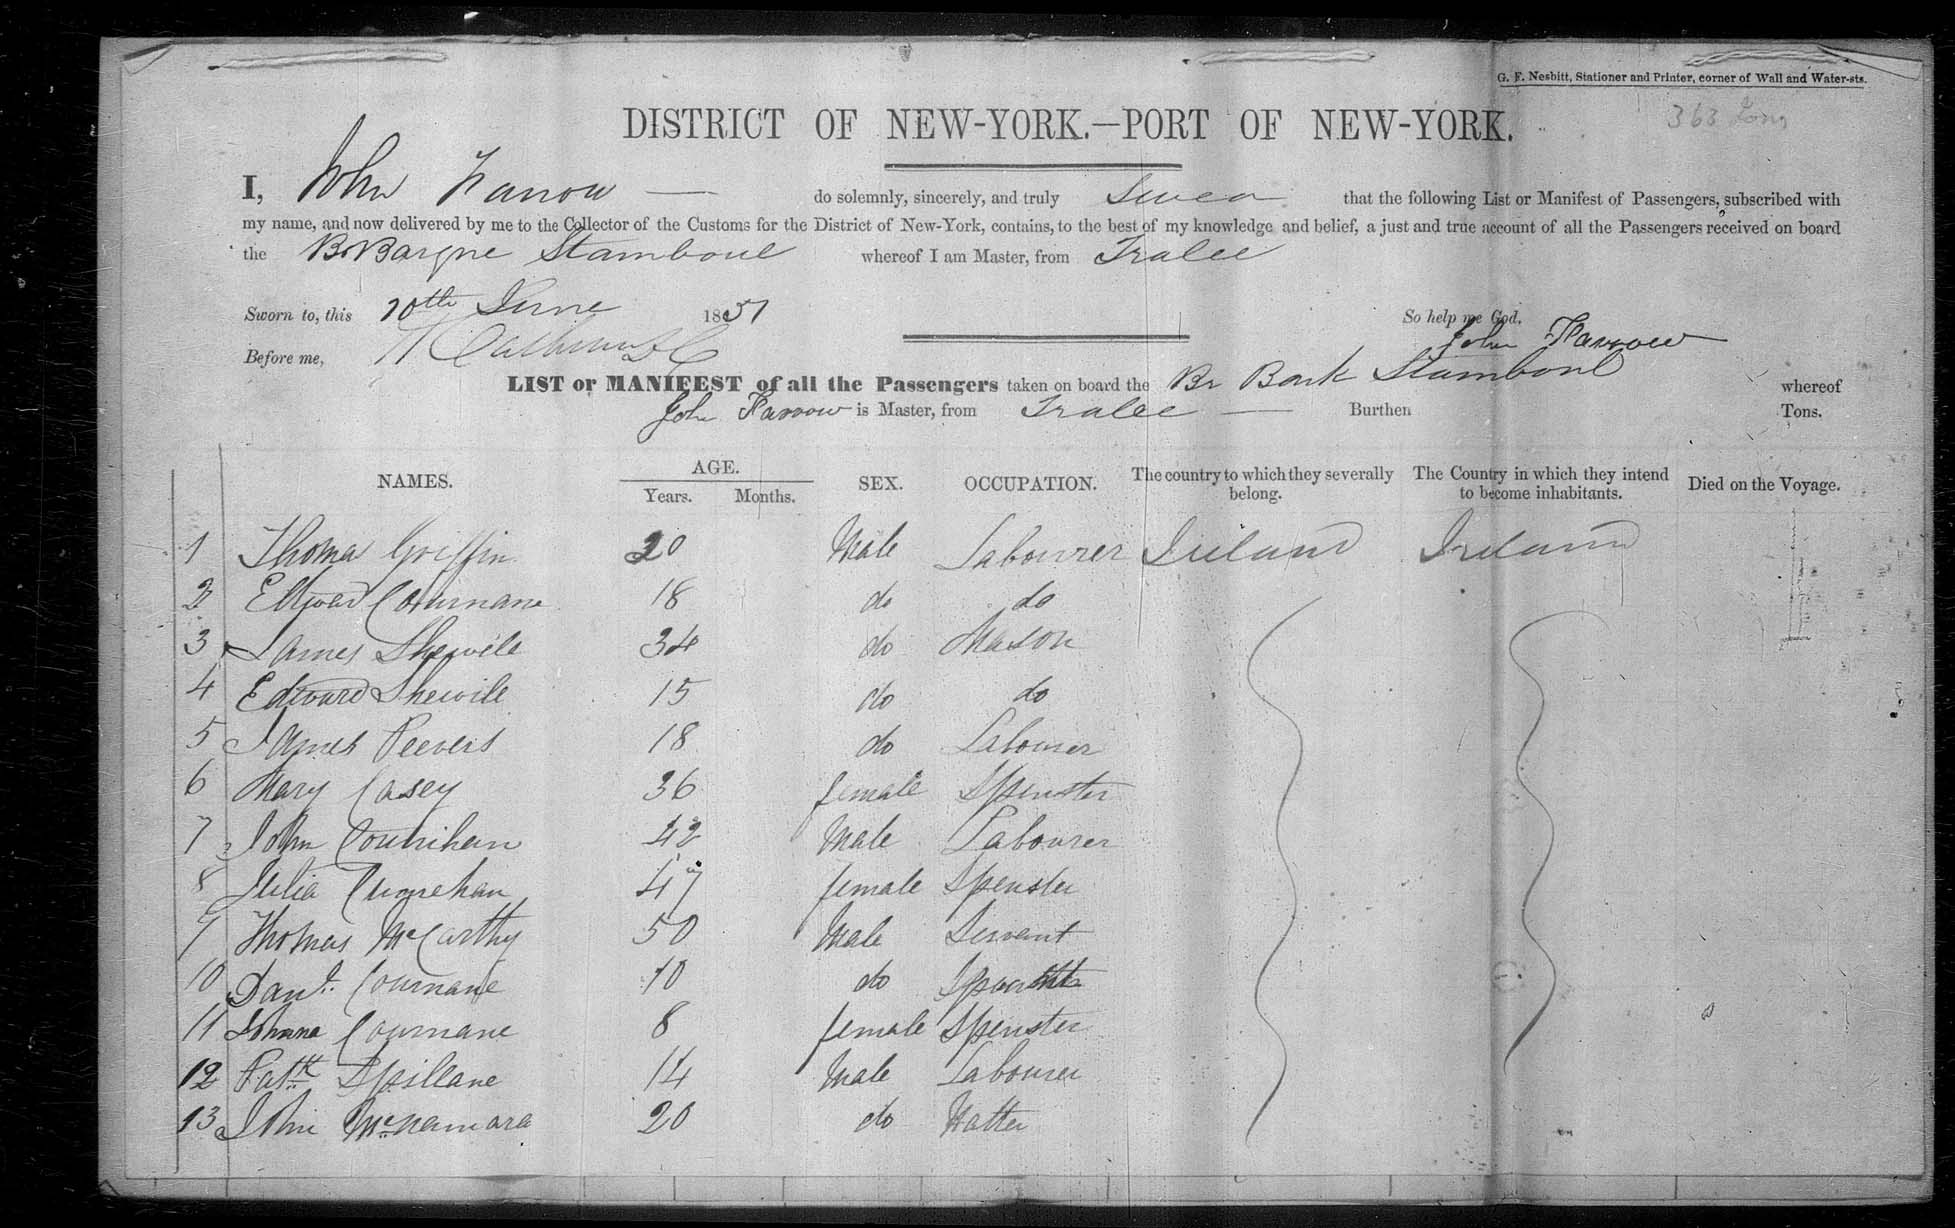 G. F. Nesbitt, Stationer and Printer, corner of Wall and Water-sts.
363 Tons
DISTRICT OF NEW-YORK.—PORT OF NEW-YORK.
I, John Farrow — do solemnly, sincerely, and truly Swear that the following List or Manifest of Passengers, subscribed with
my name, and now delivered by me to the Collector of the Customs for the District of New-York, contains, to the best of my knowledge and belief, a just and true account of all the Passengers received on board
the Br Barque Stamboul whereof I am Master, from Tralee
Sworn to, this 10th June 1851 So help me God,
Before me, John Farrow
LIST or MANIFEST of all the Passengers taken on board the Br Bark Stamboul whereof
John Farrow is Master, from Tralee — Burthen Tons.
NAMES. AGE. SEX. OCCUPATION. The country to which they severally belong. The Country in which they intend to become inhabitants. Died on the Voyage.
Years. Months.
1 Thomas Griffin 20 Male Labourer Ireland Ireland
2 Edward Cournane 18 do do
3 James Shewile 34 do Mason
4 Edward Shewile 15 do do
5 James Peevers 18 do Labourer
6 Mary Casey 36 female Spenster
7 John Counihan 42 Male Labourer
8 Julia 47 female Spenster
9 Thomas McCarthy 50 Male Servant
10 Danl. Cournane 10 do
11 Johanna Cournane 8 female Spenster
12 Patk Spillane 14 Male Labourer
13 John McNamara 20 do Hatter